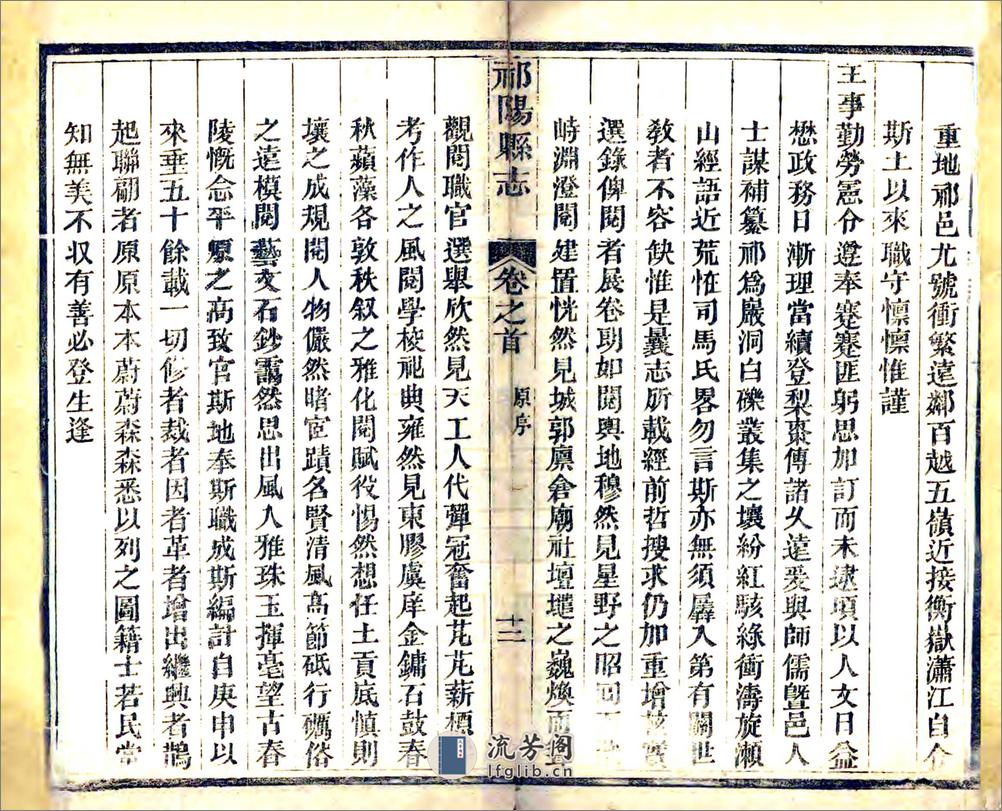 重地祁邑尤號衝繁遠鄰百越五嶺近接衡嶽瀟江自今
斯土以來職守懍懍惟謹
王事勤勞憲令遵奉蹇蹇匪躬思加訂而未逮項以人文日益
懋政務日漸理當續登梨棗傳諸久遠爰與師儒曁邑人
士謀補纂祁爲巖洞白礫叢集之壤紛紅駭綠衝濤旋瀨
山經語近荒恠司馬氏畧勿言斯亦無須羼入第有關世
敎者不容缺惟是曩志所載經前哲搜求仍加重增核實
選錄俾閱者展卷朗如閱輿地穆然見星野之昭回
峙淵澄閱建置恍然見城郭廪倉廟社壇壝之巍煥而
祁陽縣志 卷之首 原序 十二
觀閱職官選舉欣然見天工人代彈冠奮起芃芃薪槱
考作人之風閱學校祀典雍然見東膠虞庠金鏞石鼓春
秋蘋藻各敦秩叙之雅化閱賦役惕然想任土貢底愼則
壤之成規閱人物儼然睹宦蹟名賢淸風高節砥行礪俗
之遠模閱藝文石鈔靄然思出風入雅珠玉揮毫望古春
陵慨念平原之高致官斯地奉斯職成斯編計自庚申以
來垂五十餘載一切修者裁者因者革者增出繼興者鵲
起聯翩者原原本本蔚蔚森森悉以列之圖籍士若民當
知無美不収有善必登生逢
流芳阁
lfglib.cn